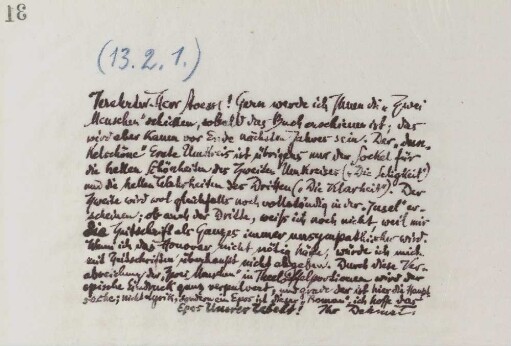 31
(13. 2. 1.)
Verehrter Herr Stoessl! Gern werde ich Ihnen die „Zwei
Menschen" schicken, sobald das Buch erschienen ist; das
wird aber kaum vor Ende nächsten Jahres sein. Der „dun-
kelschöne" Erste Umkreis ist übrigens nur der Sockel für
die hellen Schönheiten des Zweiten Umkreises („Die Seligkeit")
und die hellen Wahrheiten des Dritten („Die Klarheit"). Der
Zweite wird wol gleichfalls noch vollständig in der „Insel" er-
scheinen; ob auch der Dritte, weiß ich noch nicht, weil mir
die Zeitschrift als Ganzes immer unsympathischer wird.
Wenn ich das Honorar nicht nötig hätte, würde ich mich
mit Zeitschriften überhaupt nicht abgeben. Durch diese Ver-
abreichung der „Zwei Menschen" in Theelöffelportionen wird der
epische Eindruck ganz verpulvert, und grade der ist hier die Haupt
sache; nicht Lyrik, sondern ein Epos ist dieser „Roman", ich hoffe das
Epos Unsrer Zeit! Ihr Dehmel.